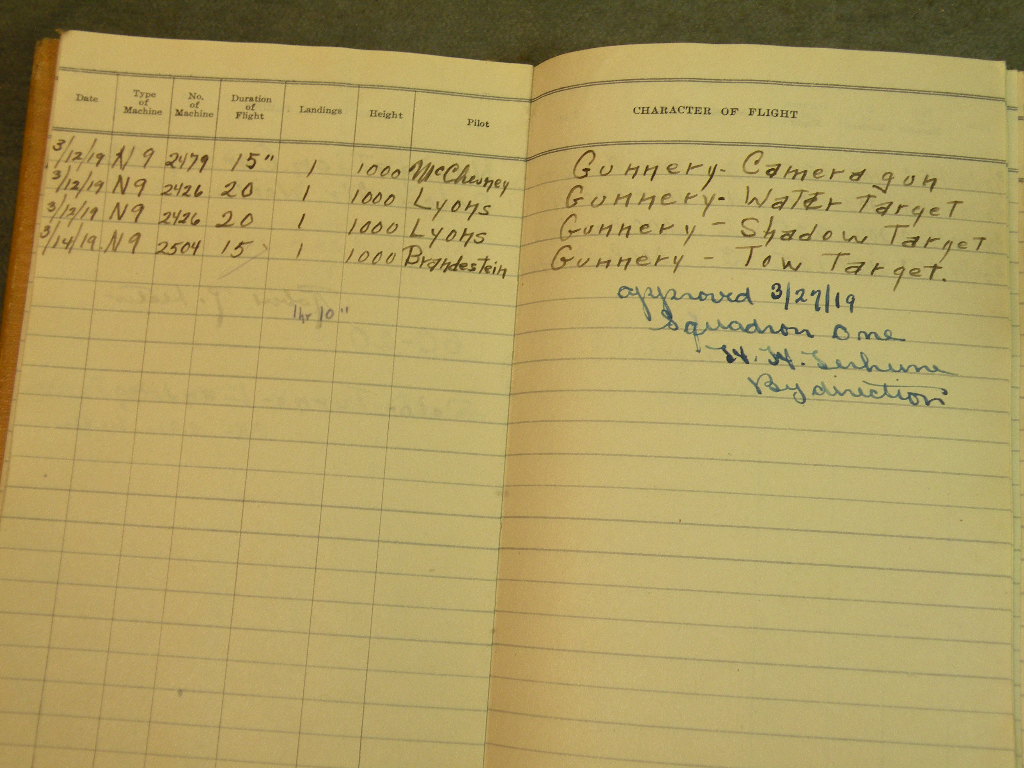 Date Type of Machine No. of Machine Duration of Flight Landings Height Pilot CHARACTER OF FLIGHT
3/12/19 N9 2479 15" 1 1000 McChesney Gunnery- Camera gun
3/12/19 N9 2426 20 1 1000 Lyons Gunnery- Water Target
3/12/19 N9 2426 20 1 1000 Lyons Gunnery - Shadow Target
3/14/19 N9 2504 15 1 1000 Brandestein Gunnery - Tow Target.
1 hr 10"
approved 3/27/19
Squadron One
H. H. Terhune
By direction